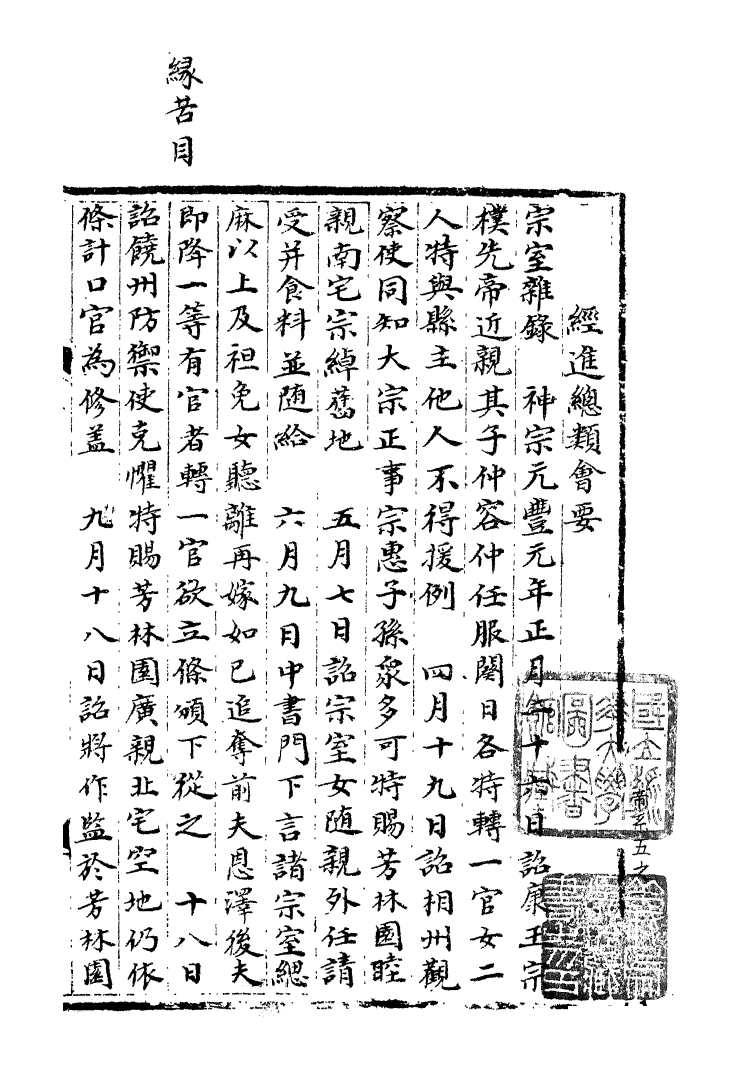 緣苦目
經進總類會要
宗室雜錄　神宗元豐元年正月二十六日詔康王宗
樸先帝近親其子仲容仲任服闋日各特轉一官女二
人特與縣主他人不得援例　四月十九日詔相州觀
察使同知大宗正事宗惠子孫衆多可特賜芳林園睦
親南宅宗綽舊地　五月七日詔宗室女随親外任請
受并食料並随給　六月九日中書門下言諸宗室緦
麻以上及袒免女聽離再嫁如已追奪前夫恩澤後夫
即降一等有官者轉一官欲立條頒下從之　十八日
詔饒州防禦使克懼特賜芳林園廣親北宅空地仍依
條計口官為修盖　九月十八日詔將作監於芳林園
帝系五之